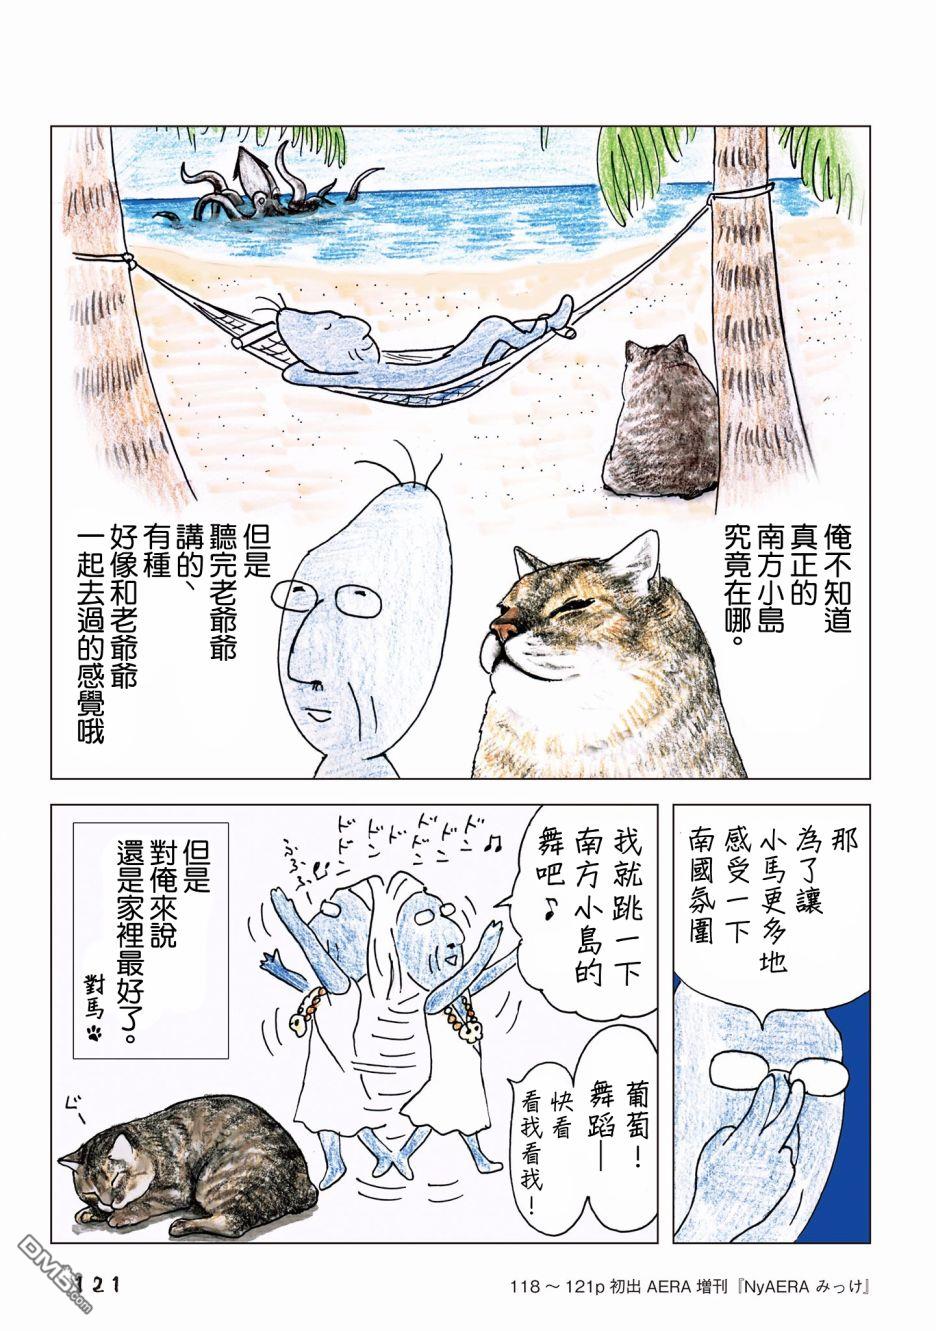 俺不知道
真正的
南方小島
究竟在哪。
但是
聽完老爺爺
講的、
有種
好像和老爺爺
一起去過的感覺哦
那
為了讓
小馬更多地
感受一下
南國氛圍
我就跳一下
南方小島的
舞吧♪
葡萄！
舞蹈——
快看
看我看我！
ドンドンドンドン♪
但是
對俺來說
還是家裡最好了。
對馬
121
118～121p 初出 AERA 増刊『NyAERA みっけ』